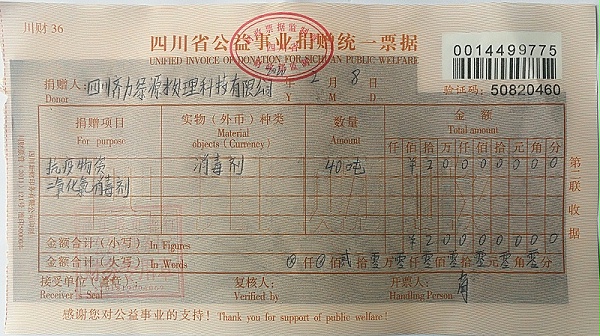 川财 36
四川省公益事业捐赠统一票据
UNIFIED INVOICE OF DONATION FOR SICHUAN PUBLIC WELFARE
0014499775
验证码: 50820460
捐赠人: 四川 力 源 理科技有限公司 年 2 月 8 日
Donor Y M D
捐赠项目 实物（外币）种类 数量 金额
For purpose Material objects (Currency) Amount Total amount
仟 佰 拾 万 仟 佰 拾 元 角 分
抗疫物资 消毒剂 40吨 ¥ 2 0 0 0 0 0 0 0
二氧化氯消毒剂
金额合计（小写）In Figures ¥ 2 0 0 0 0 0 0 0
金额合计（大写）In Words 仟 佰 贰 拾 零 万 零 仟 零 佰 零 拾 零 元 零 角 零 分
接受单位（盖章）: 复核人: 开票人:
Receiver's Seal Verified by Handling Person
感谢您对公益事业的支持! Thank you for support of public welfare!
第二联 收据